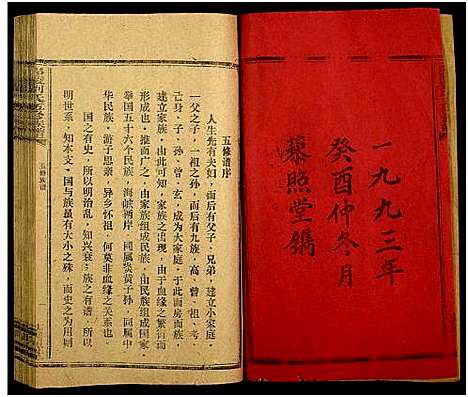 一九九三年
癸酉仲冬月
慕照堂鐫
五修譜序
人生先有夫婦，而后有父子，兄弟，建立小家庭，
一父之子，一祖之孫，而后有九族，高、曾、祖、考、
己身、子、孫、曾、玄，成为大家庭，于此而房而族，
建立家族，由此可知，家族之出現，由于血緣之繁衍而
形成也。推而广之，由家族組成民族，由民族組成国家，
拳国五十六个民族，海峽兩岸，同屬炎黄子孫，同屬中
华民族，游于思亲，异乡怀祖，何莫非血緣之关系也。
国之有史，所以明治乱，知兴衰，族之有谱，所以
明世系，知本支，国与族虽有大小之殊，而史之为用則
五修族谱